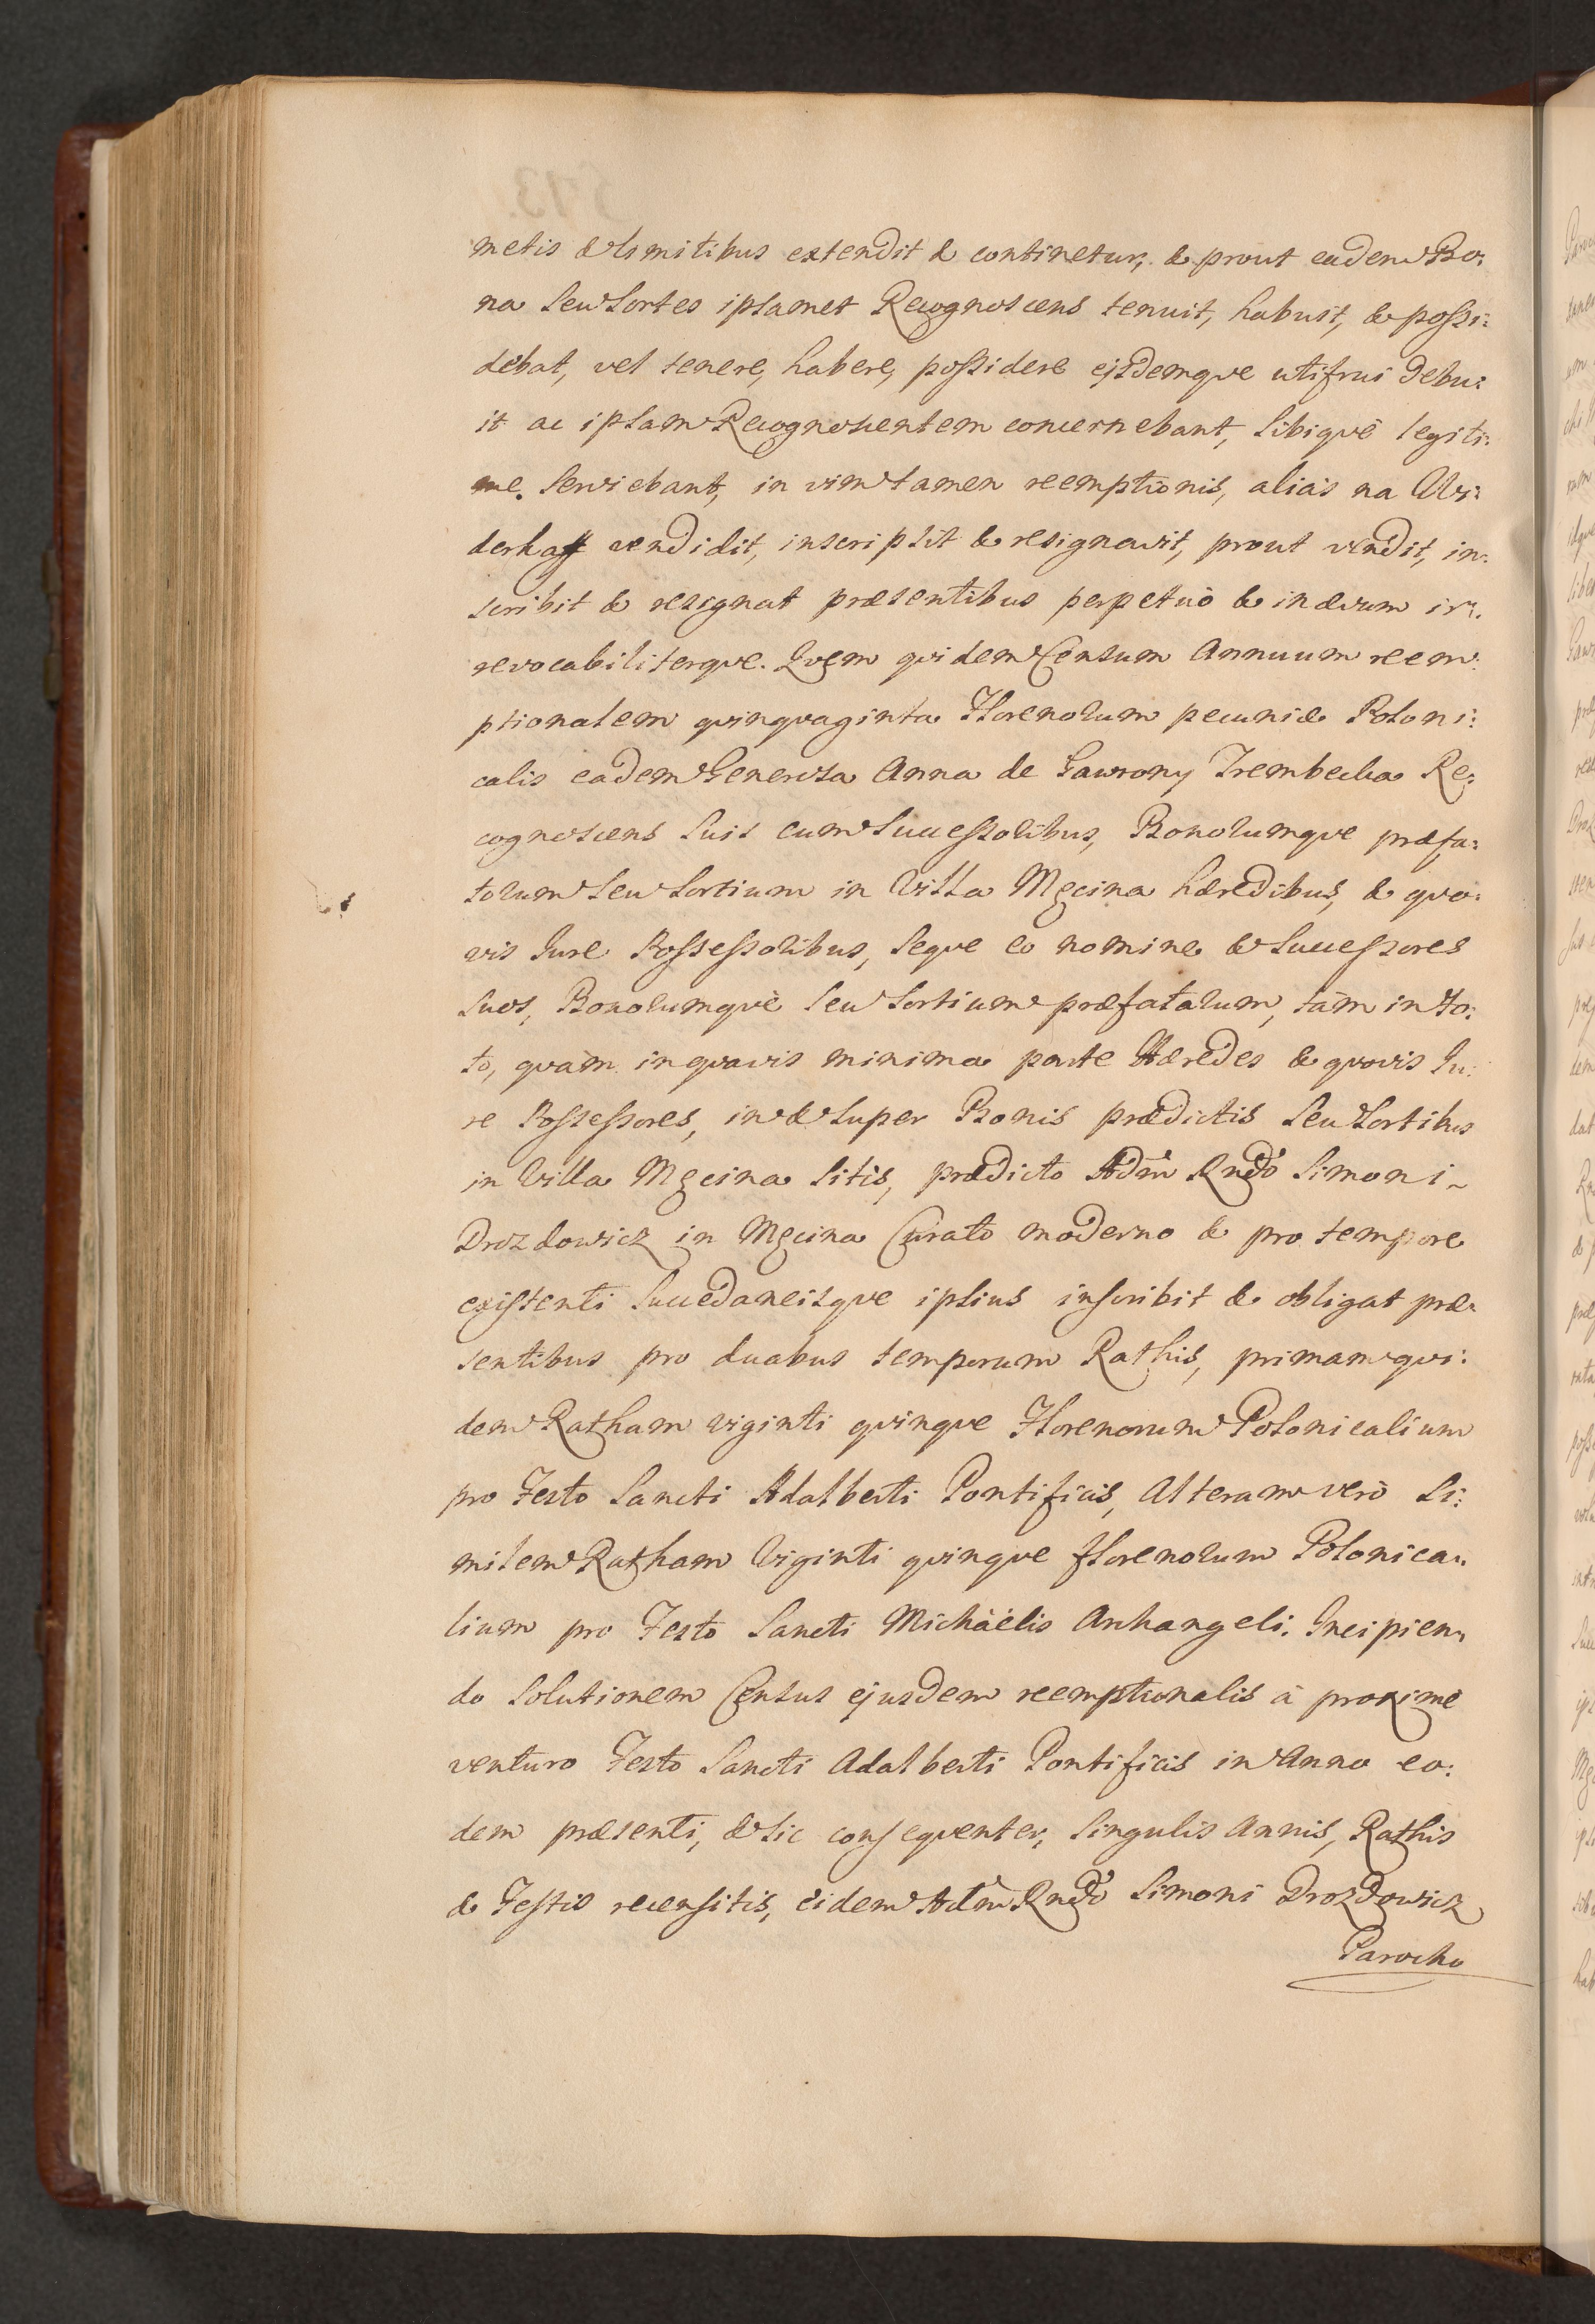 metis & limitibus extendit & continetur, & prout eadem Bo:
na seu Sortes ipsamet Recognoscens tenuit, habuit, & possi:
debat, vel tenere, habere, possidere ejsdemque utifrui debu:
it ac ipsam Recognoscentem concernebant, sibique legiti:
me. serviebant, in vim tamen reemptionis, aliàs na Wy:
derkaff vendidit, inscripsit & resignavit, prout vendit, in:
scribit & resignat præsentibus perpetuò & in ævum ir:
revocabiliterque. Quem quidem Censum Annuum reem:
ptionalem quinquaginta Florenorum pecuniæ Poloni:
calis eadem Generosa Anna de Gawrony Trembecka Re:
cognoscens suis cum Successoribus, Bonorumque præfa:
torum seu Sortium in Villa Męcina hæredibus, & quo:
vis Jure Possessoribus, seque eo nomine & Successores
suos, Bonorumquè seu Sortium præfatarum, tàm in to:
to, quàm in quavis minima parte Hæredes & quovis Ju:
re Possessores, in & super Bonis prædictis seu Sortibus
in Villa Męcina sitis, prædicto Adm̃ Rndo Simoni ~
Drozdowicz in Męcina Curato moderno & pro tempore
existenti Succedaneisque ipsius inscribit & obligat præ:
sentibus pro duabus temporum Rathis, primam qui:
dem Ratham viginti quinque Florenorum Polonicalium
pro Festo Sancti Adalberti Pontificis, Alteram verò Si:
milem Ratham Viginti quinque florenorum Polonica:
lium pro Festo Sancti Michäelis Archangeli. Incipien:
do solutionem Census ejusdem reemptionalis à proximè
venturo Festo Sancti Adalberti Pontificis in Anno eo:
dem præsenti, & sic consequenter, singulis Annis, Rathis
& Festis recensitis, eidem Adm̃ Rndo Simoni Drozdowicz
Parocho